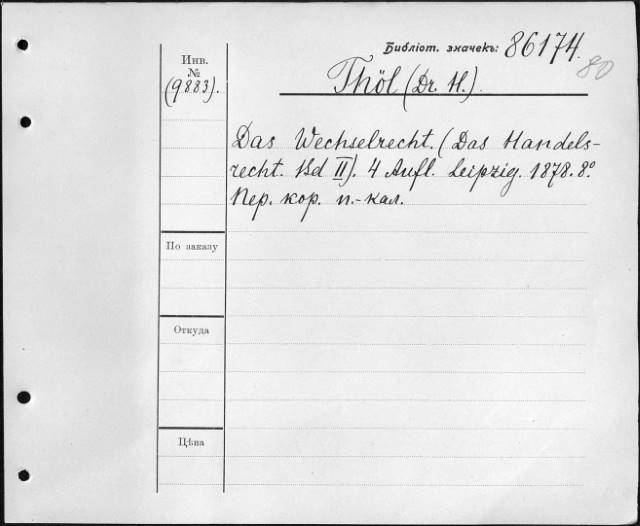 Библіот. значекъ: 86174.
80
Инв.
№
(9883).
Thöl (Dr. H.)
Das Wechselrecht. (Das Handels-
recht. Bd II). 4 Aufl. Leipzig. 1878. 8.º
Пер. кор. п.-кал.
По заказу
Откуда
Цѣна